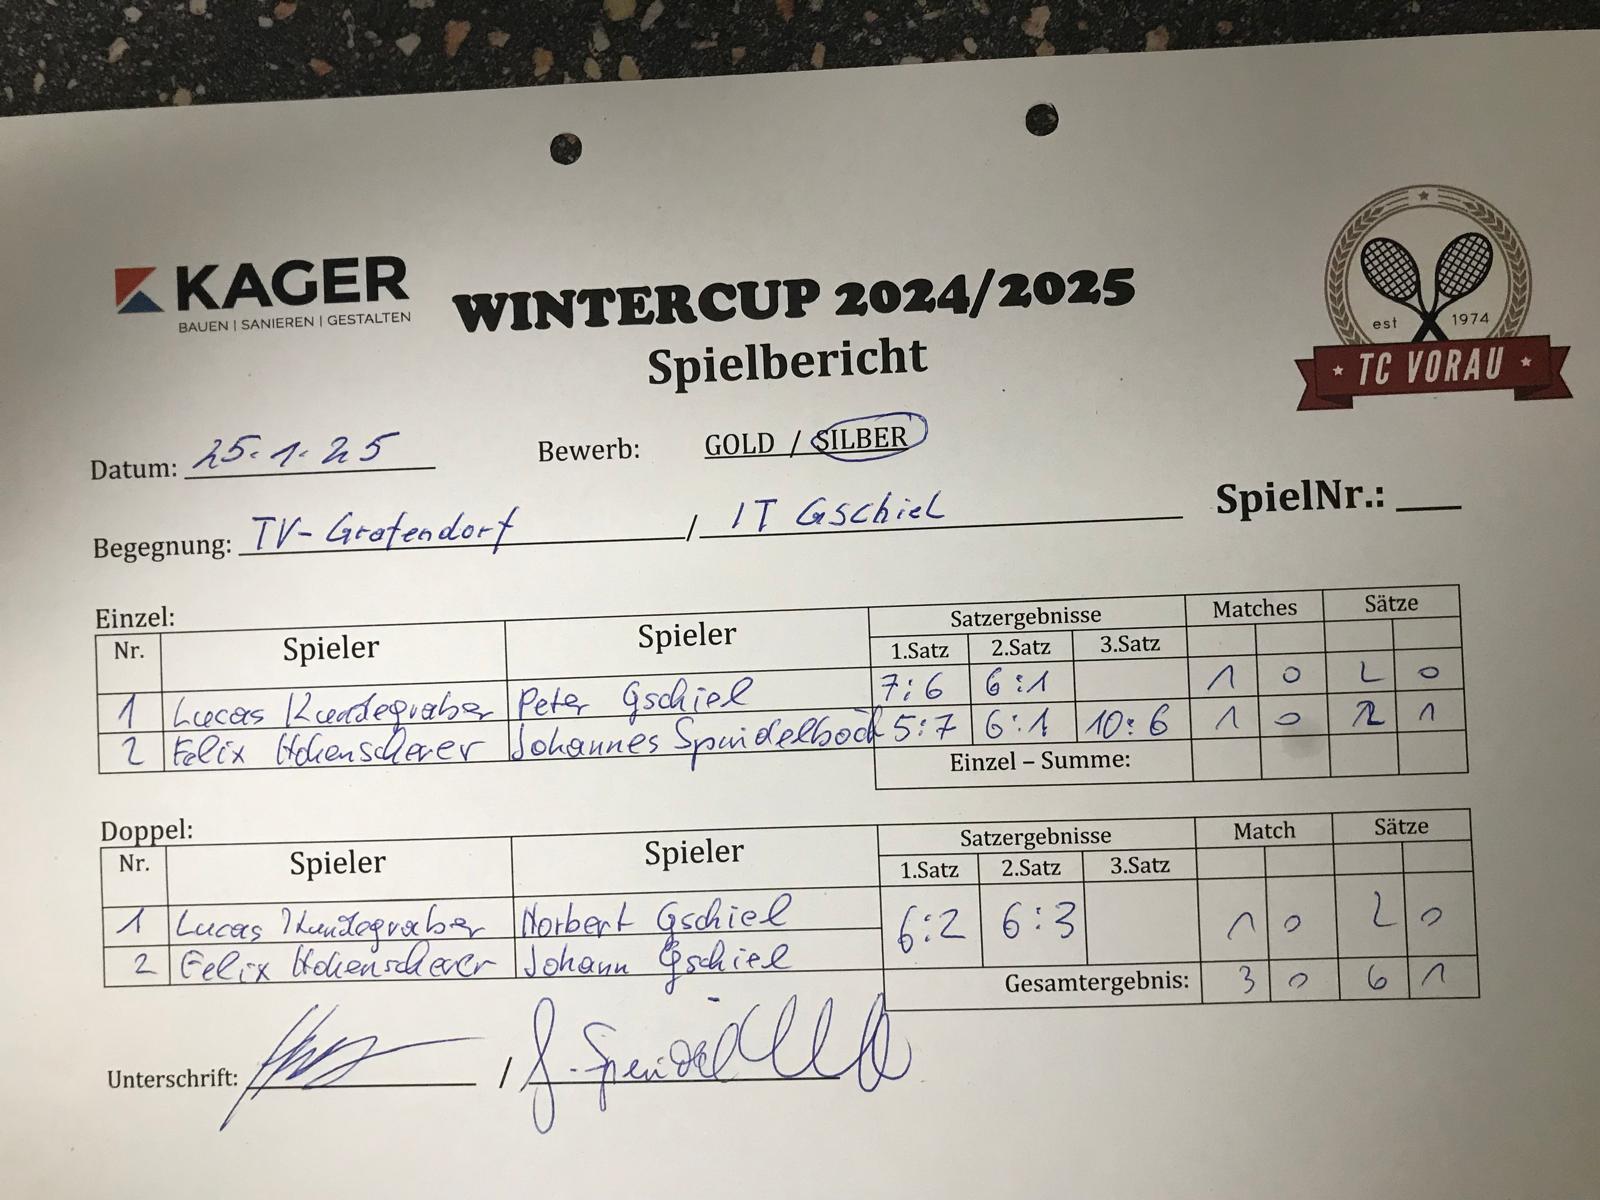 KAGER
BAUEN | SANIEREN | GESTALTEN
WINTERCUP 2024/2025
Spielbericht
est 1974
★ TC VORAU ★
Datum: 25.1.25 Bewerb: GOLD / SILBER
Begegnung: TV-Grafendorf / IT Gschiel SpielNr.: ___
Einzel:
Nr. Spieler Spieler Satzergebnisse Matches Sätze
1.Satz 2.Satz 3.Satz
1 Lucas Kundegraber Peter Gschiel 7:6 6:1 1 0 2 0
2 Felix Hohenscherer Johannes Spindelböck 5:7 6:1 10:6 1 0 2 1
Einzel – Summe:
Doppel:
Nr. Spieler Spieler Satzergebnisse Match Sätze
1.Satz 2.Satz 3.Satz
1 Lucas Kundegraber Norbert Gschiel 6:2 6:3 1 0 2 0
2 Felix Hohenscherer Johann Gschiel
Gesamtergebnis: 3 0 6 1
Unterschrift: /